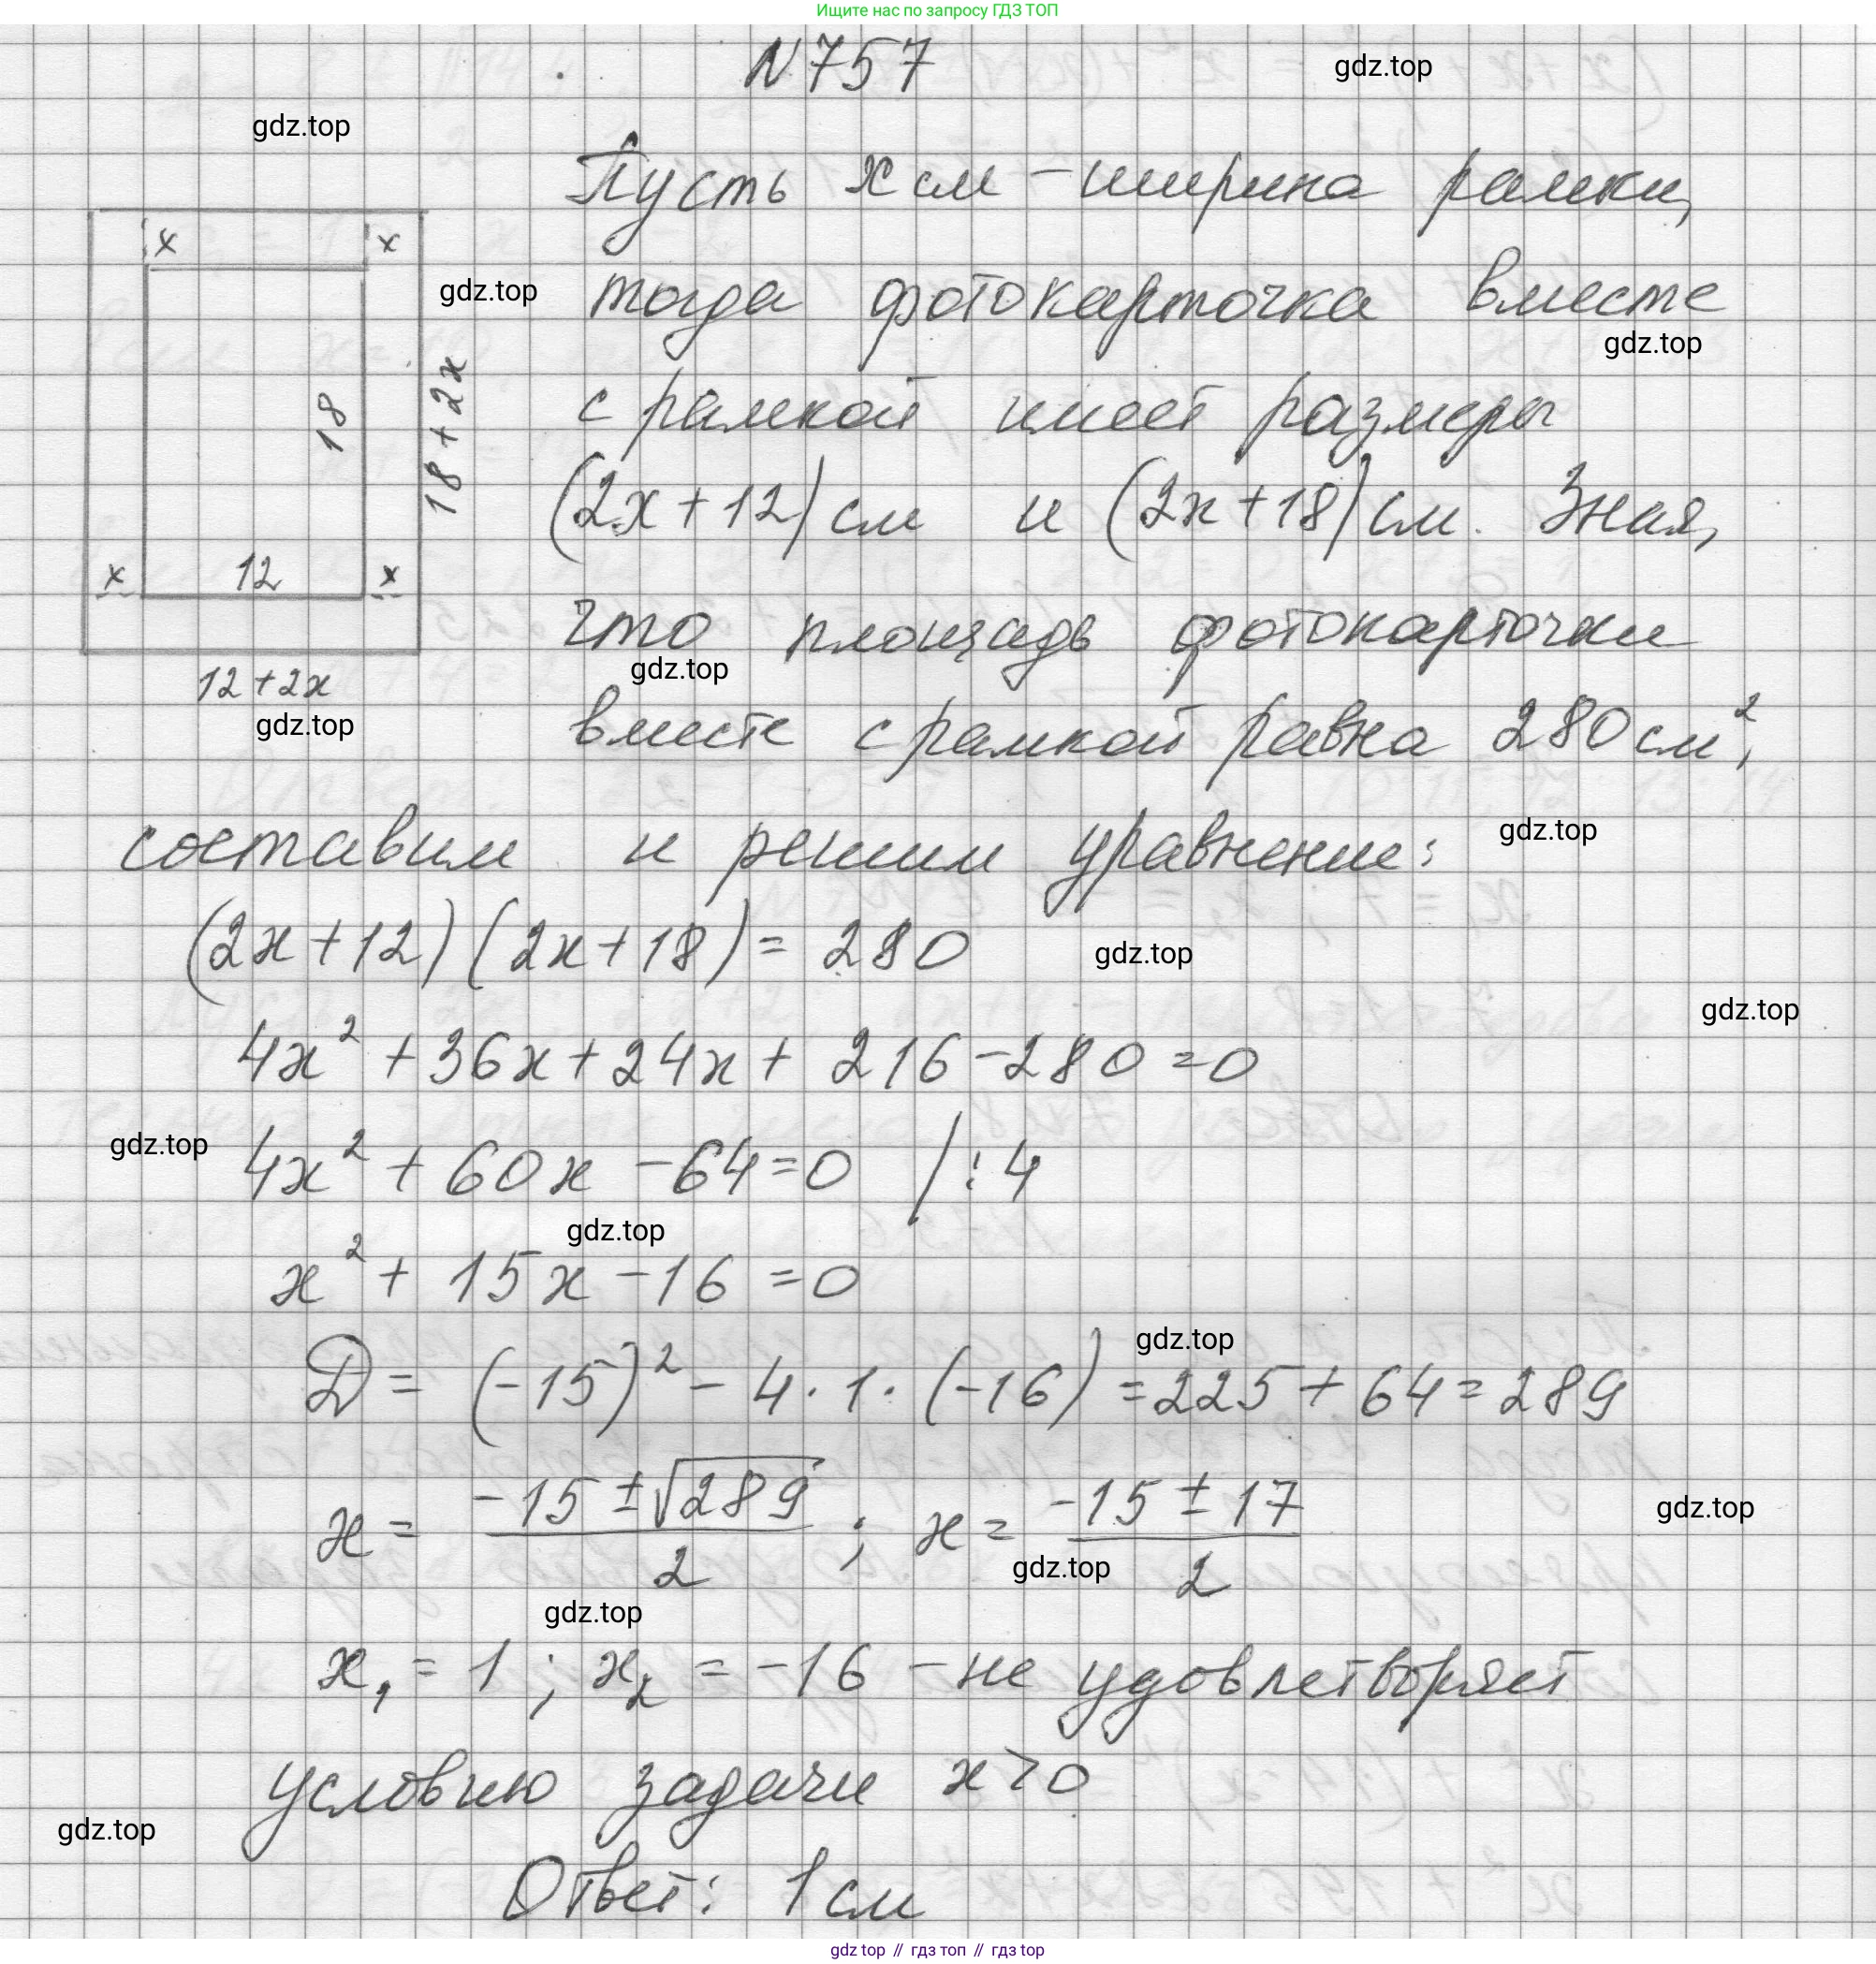 Ищите нас по запросу ГДЗ ТОП
N 757
gdz.top
gdz.top
Пусть x см - ширина рамки,
x x
gdz.top
тогда фотокарточка вместе
gdz.top
18
18 + 2x
с рамкой имеет размеры
(2x + 12) см и (2x + 18) см. Зная,
x 12 x
что площадь фотокарточки
gdz.top
12 + 2x
gdz.top
вместе с рамкой равна 280 см²,
составим и решим уравнение:
gdz.top
(2x + 12) (2x + 18) = 280
gdz.top
gdz.top
4x² + 36x + 24x + 216 - 280 = 0
gdz.top
4x² + 60x - 64 = 0 / : 4
gdz.top
x² + 15x - 16 = 0
gdz.top
D = (-15)² - 4 · 1 · (-16) = 225 + 64 = 289
x = (-15 ± √289) / 2 ; x = (-15 ± 17) / 2
gdz.top
gdz.top
gdz.top
x₁ = 1 ; x₂ = -16 - не удовлетворяет
условию задачи x > 0
gdz.top
Ответ: 1 см
gdz top // гдз топ // гdz top